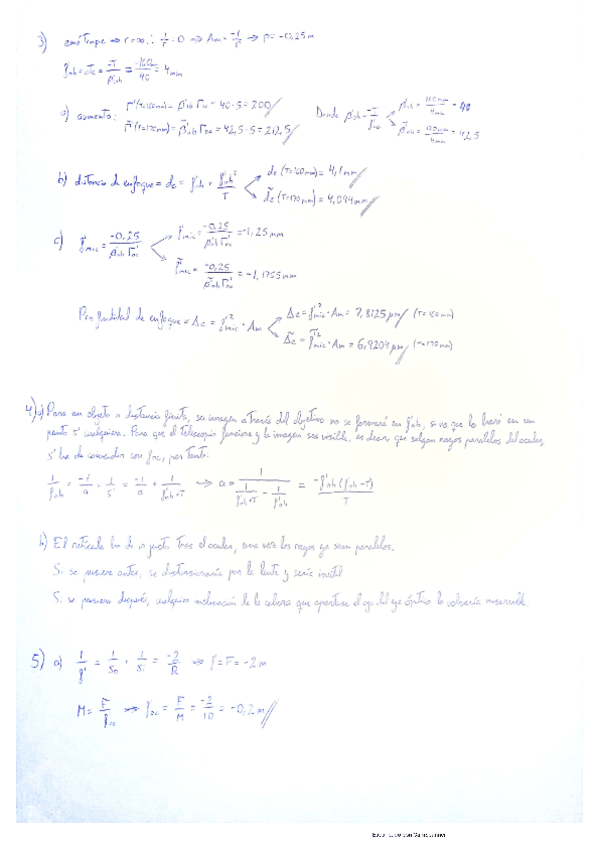 3) emétrope ⇒ r=∞ ∴ 1/r = 0 ⇒ Am = -1/p ⇒ p = -0,25 m
f'ob = = -T/β'ob = -160mm/40 = 4 mm
a) aumento: Γ'(T=160mm) = β'ob Γoc = 40·5 = 200 Donde β'ob = -T/f'ob β'ob = 160mm/4mm = 40
Γ̃'(T=170mm) = β̃'ob Γoc = 42,5·5 = 212,5 β̃'ob = 170mm/4mm = 42,5
b) distancia de enfoque = de = f'ob + f'ob²/T de (T=160mm) = 4,1mm
d̃e (T=170mm) = 4,094mm
c) f'mic = -0,25/β'ob Γ'oc f'mic = -0,25/β'ob Γ'oc = -1,25 mm
f̃'mic = -0,25/β̃'ob Γ'oc = -1,1765 mm
Profundidad de enfoque = Δe = f'mic² · Am Δe = f'mic² · Am = 7,8125 μm (T=160mm)
Δ̃e = f̃'mic² · Am = 6,9204 μm (T=170mm)
4) a) Para un objeto a distancia finita, su imagen a través del objetivo no se formará en f'ob, si no que lo hará en un
punto s' cualquiera. Para que el telescopio funcione y la imagen sea visible, es decir, que salgan rayos paralelos del ocular,
s' ha de coincidir con foc, por tanto:
1/f'ob = -1/a + 1/s' = -1/a + 1/f'ob+T → a = 1/(1/f'ob+T - 1/f'ob) = -f'ob (f'ob+T)/T
b) El retículo ha de ir justo tras el ocular, una vez los rayos ya sean paralelos.
Si se pusiera antes, se distorsionaría por la lente y sería inútil
Si se pusiera después, cualquier inclinación de la cabeza que apartase el ojo del eje óptico lo volvería inservible.
5) a) 1/f' = 1/so + 1/si = -2/R ⇒ f' = F = -2 m
M = F/foc → f'oc = F/M = -2/10 = -0,2 m